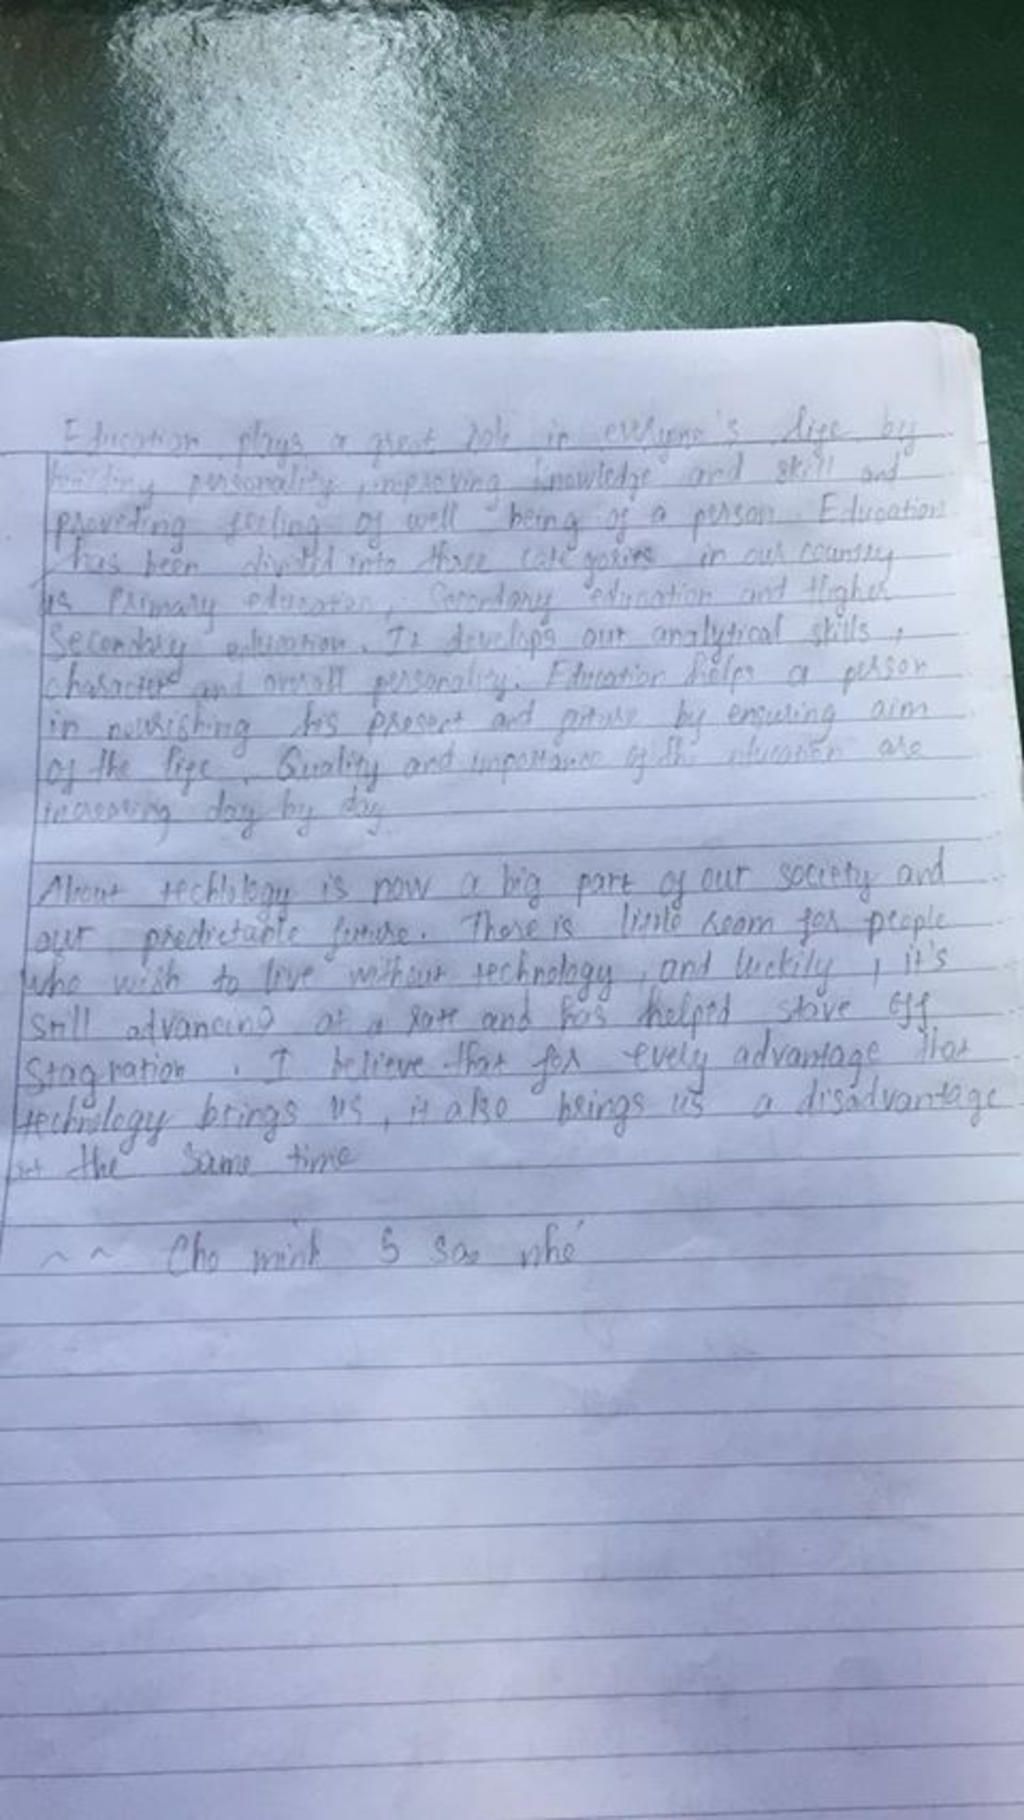 Education plays a great role in everyone's life by
building personality, improving knowledge and skill and
providing feeling of well being of a person. Education
has been divided into three categories in our country
is Primary education, Secondary education and Higher
Secondary education. It develops our analytical skills,
character and overall personality. Education helps a person
in nourishing his present and future by ensuring aim
of the life. Quality and importance of the education are
increasing day by day
About techlology is now a big part of our society and
our predictable future. There is little room for people
who wish to live without technology, and luckily, it's
still advancing at a rate and has helped stave off
Stagnation. I believe that for every advantage that
technology brings us, it also brings us a disadvantage
at the same time
~ ~ Cho mình 5 sao nhé